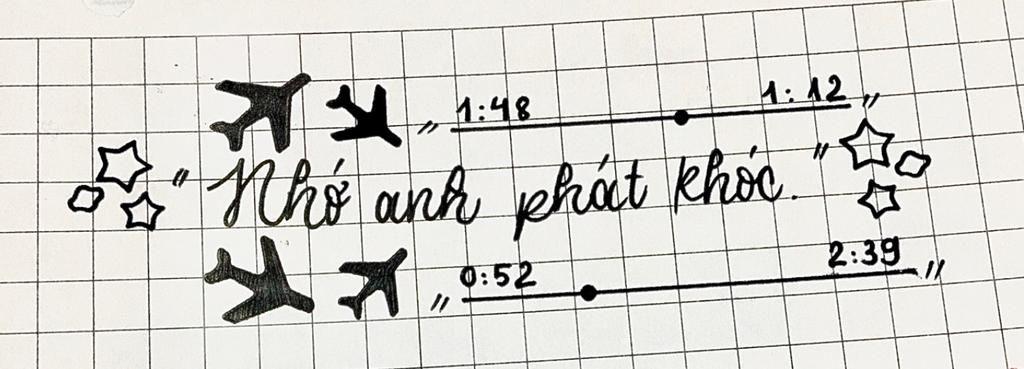 " 1:48 1:12 "
" Nhớ anh phát khóc. "
" 0:52 2:39 "